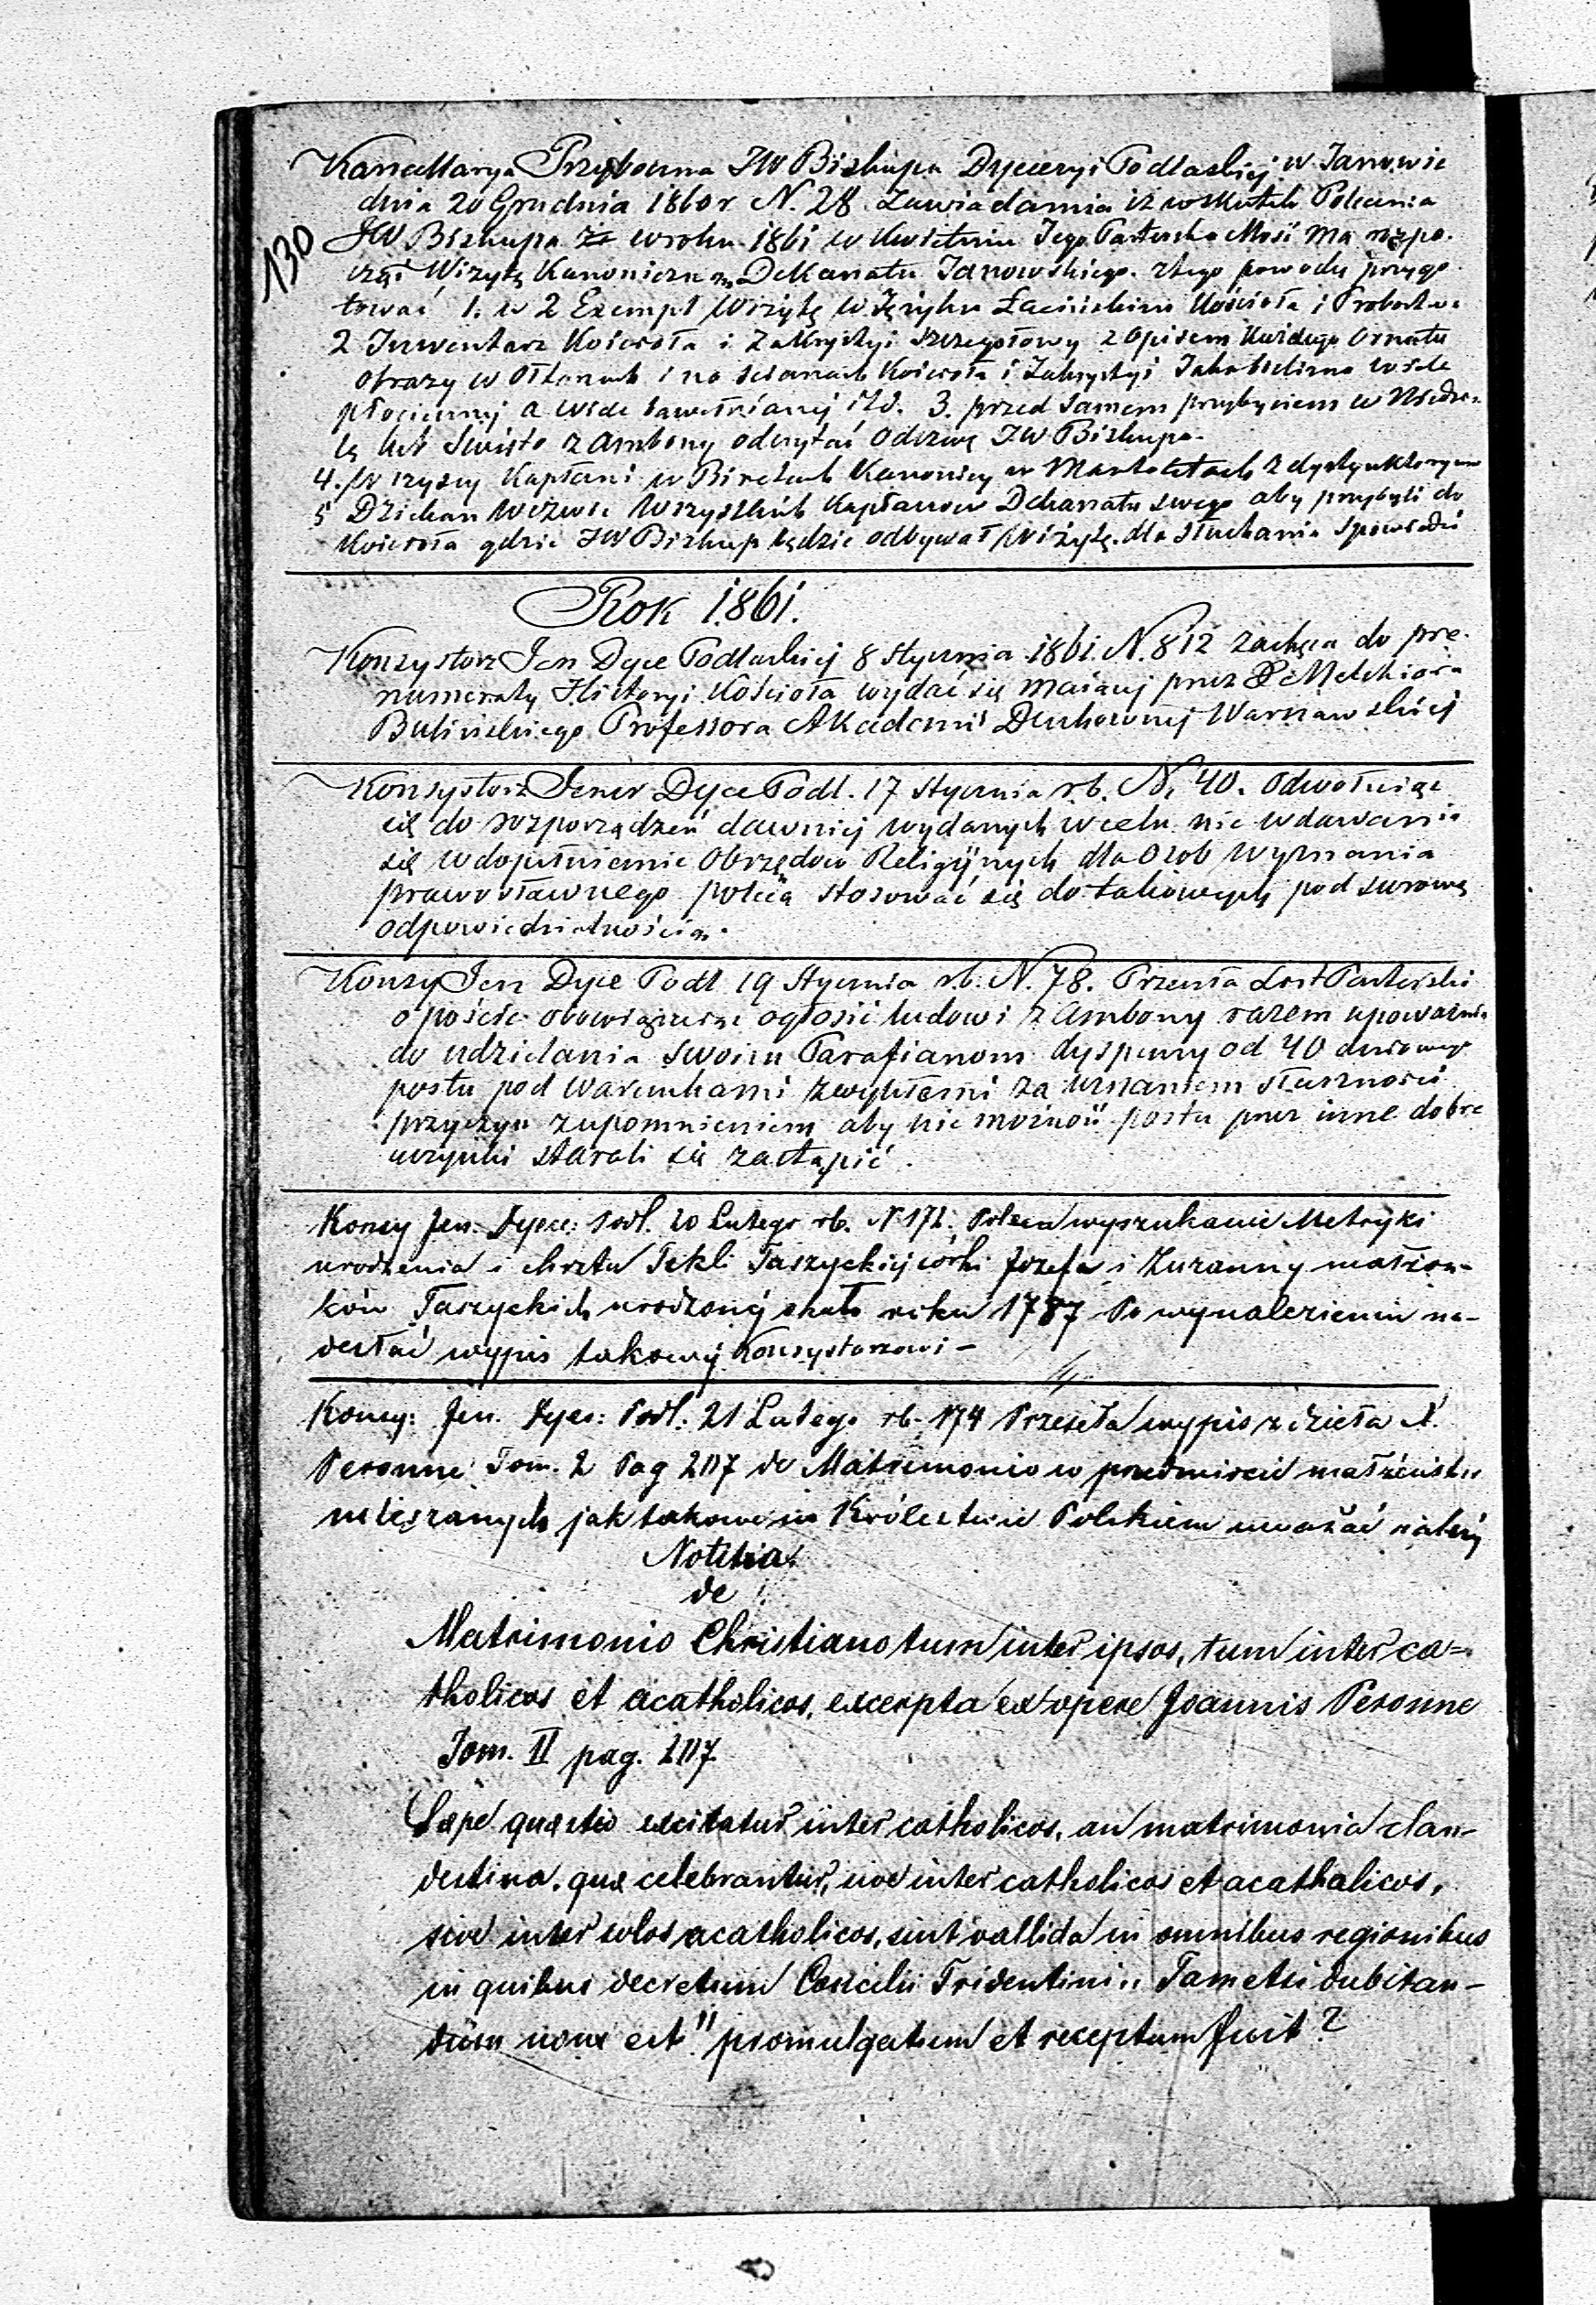 130
Kancellarya Przyboczna JW Biskupa Dyecezyi Podlaskiej w Janowie
dnia 20 Grudnia 1860 r N. 28 Zawiadamia iż wskutek Polecenia
JW Biskupa w roku 1861 w Kwietniu Jego Pasterska Mość ma rozpo-
cząć Wizytę Kanoniczną Dekanatu Janowskiego. z tego powodu przygo
tować 1. w 2 Exempl Wizytę w Języku Łacińskim Kościoła i Probostwa
2 Inwentarz Kościoła i Zakrystyi szczegołowy z Opisem każdego Ornatu
Obrazy w Ołtarzach i na ścianach Kościoła i Zakrystyi Jako bielizna wiele
płociennej a wiele bawełnianej itd. 3. przed samem przybyciem w Niedzie-
lę lub Święto z Ambony odczytać Odezwę JW Biskupa.
4. Wszyscy Kapłani w Biretach Kanonicy w Mantoletach z dystynktoryum
5 Dziekan wezwie Wszystkich Kapłanow Dekanatu swego aby przybyli do
Kościoła gdzie JW Biskup będzie odbywał Wizytę dla słuchania Spowiedzi
Rok 1861.
Konsystorz Jen Dyec Podlaskiej 8 Stycznia 1861. N. 812 zachęca do pre-
numeraty Historyi Kościoła wydać się maiącej przez X Melchiora
Bulińskiego Professora Akademii Duchownej Warszawskiej
Konsystorz Jener Dyec Podl. 17 Stycznia r.b. N. 40. Odwołuiąc
się do rozporządzeń dawniej wydanych w celu nie wdawania
się w dopełnienie Obrzędow Religijnych dla Osob Wyznania
prawosławnego poleca stosować się do takowych pod surową
odpowiedzialnością.
Konsy Jen Dyec Podl 19 Stycznia r.b. N. 78. Przesyła List Pasterski
o poście obowiązuiąc ogłosić ludowi z Ambony razem upoważnia
do udzielania swoim Parafianom dyspensy od 40 dniowego
postu pod Warunkami zwykłemi za uznaniem słuszności
przyczyn z upomnieniem aby nie możność postu przez inne dobre
uczynki starali się zastąpić.
Konsy Jen: Dyece: Podl. 20 Lutego rb. N 172. Poleca wyszukanie Metryki
urodzenia i chrztu Tekli Taszyckiej córki Jozefa i Zuzanny małżon-
ków Taszyckich urodzonej około roku 1787 Po wynalezieniu na-
desłać wypis takowej Konsystorzowi -
Konsy: Jen. Dyec: Podl. 21 Lutego rb. 174 Przesyła wypis z dzieła X.
Peronne Tom. 2 Pag 207 de Matrimonio w przedmiocie małżeństw
mieszanych jak takowe w Królestwie Polskiem uważać należy
Notitia
de
Matrimonio Christiano tum inter ipsos, tum inter ca=
tholicos et acatholicos, excerpta ex opere Joannis Peronne
Tom. II pag. 207
Sæpe quæstio excitatur inter catholicos, an matrimonia clan-
destina, quæ celebrantur, sive inter catholicos et acatholicos,
sive inter solos acatholicos, sint vallida in omnibus regionibus
in quibus decretum Concilii Tridentini „Tametsi dubitan-
dum non est" promulgatum et receptum fuit?